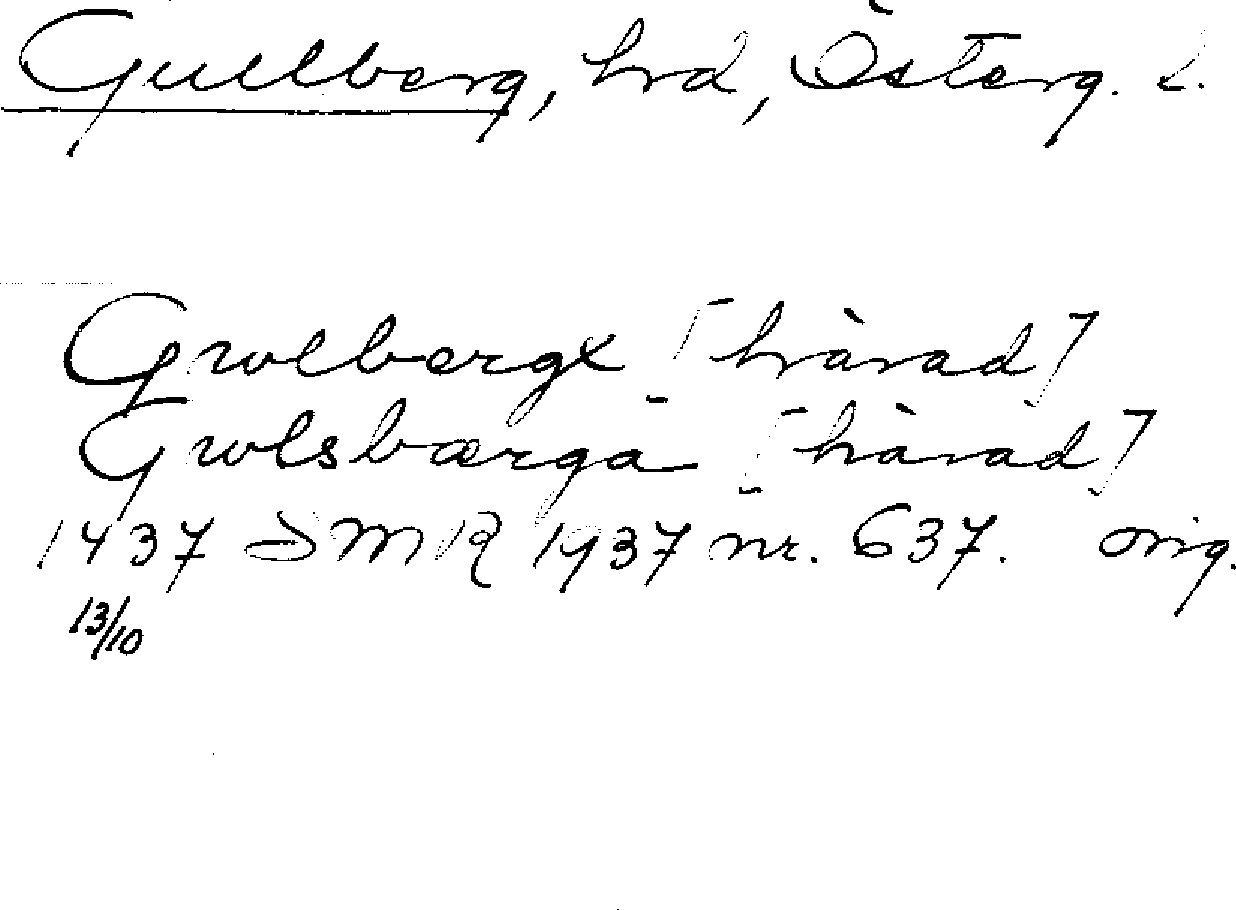 Gullberg, hrd, Österg. L.
Gwlbergx [härad]
Gwlsbærga [härad]
1437 SMR 1937 nr. 637. orig.
13/10